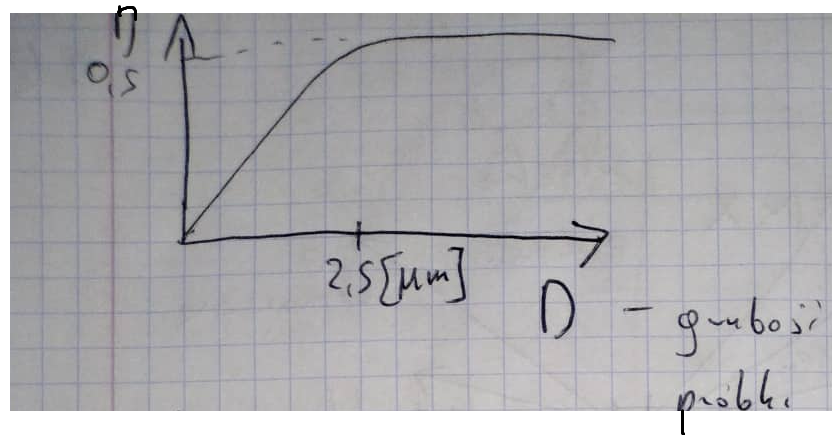 η
0,5
2,5 [μm]
D – grubości
próbki